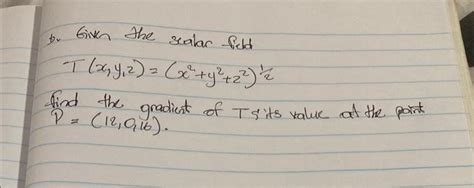 b. Given the scalar field
T(x,y,z) = (x²+y²+z²)^½
find the gradient of T & its value at the point
P = (12,0,16).